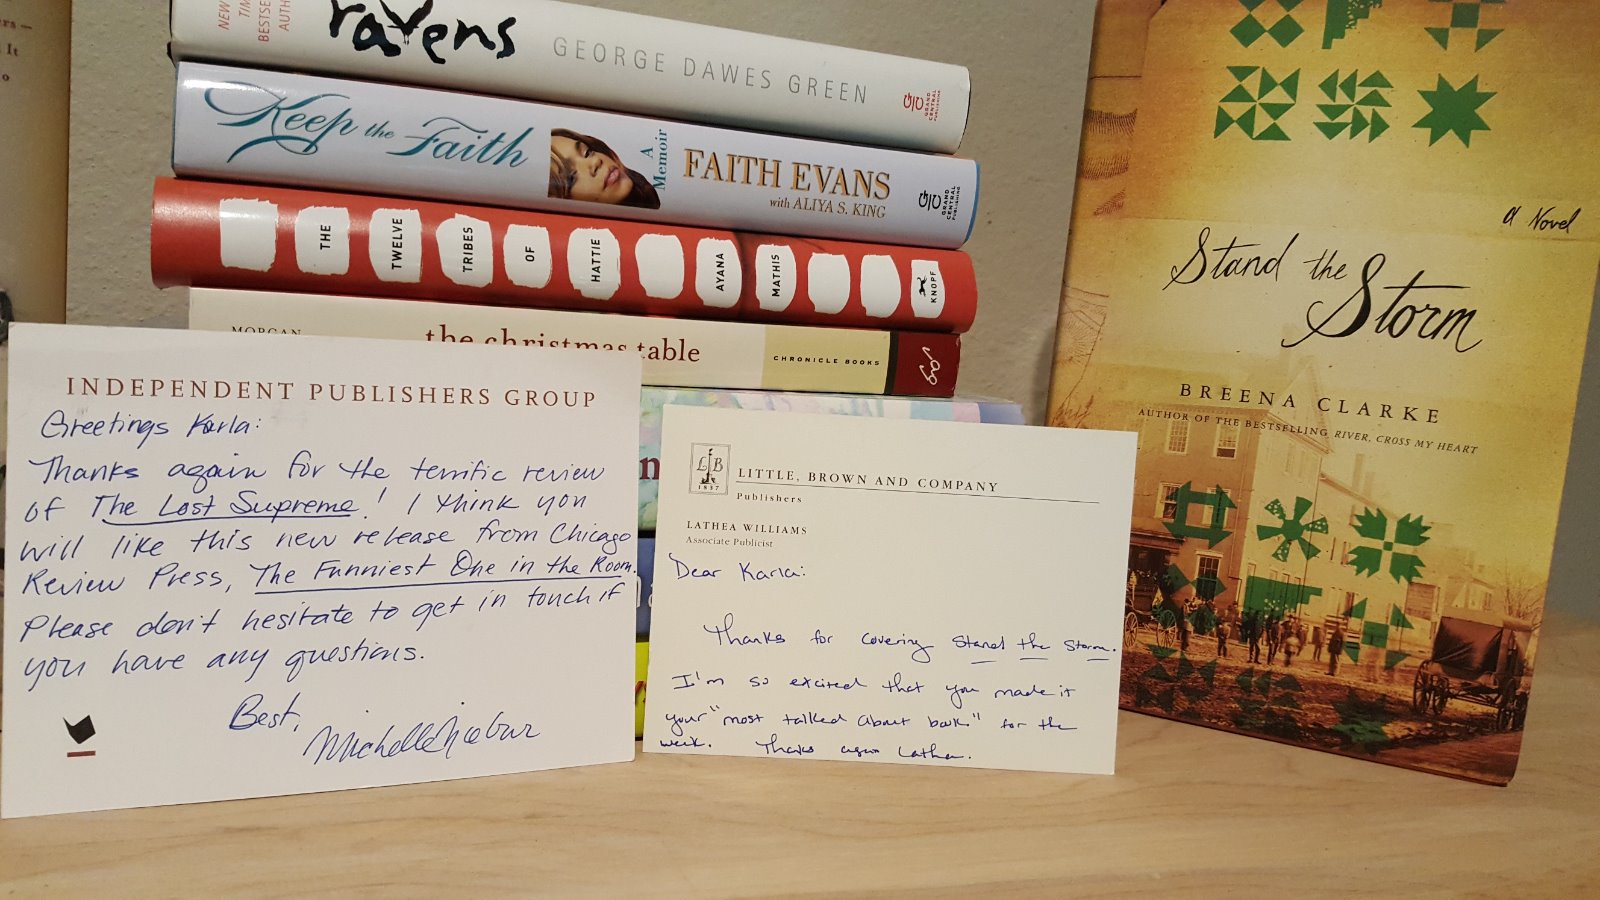 ers —
It
o
NEW
TIM
BESTSE
AUTH
ravens GEORGE DAWES GREEN
GRAND CENTRAL PUBLISHING
Keep the Faith A Memoir FAITH EVANS
with ALIYA S. KING
GRAND CENTRAL PUBLISHING
THE TWELVE TRIBES OF HATTIE AYANA MATHIS KNOPF
MORGAN the christmas table CHRONICLE BOOKS
INDEPENDENT PUBLISHERS GROUP
Greetings Karla:
Thanks again for the terrific review
of The Lost Supreme! I think you
will like this new release from Chicago
Review Press, The Funniest One in the Room.
Please don't hesitate to get in touch if
you have any questions.
Best,
n
LB
1837
LITTLE, BROWN AND COMPANY
Publishers
LATHEA WILLIAMS
Associate Publicist
Dear Karla:
Thanks for covering Stand the Storm.
I'm so excited that you made it
your "most talked about books" for the
week. Thanks again Lathea.
a Novel
Stand the
Storm
BREENA CLARKE
AUTHOR OF THE BESTSELLING RIVER, CROSS MY HEART